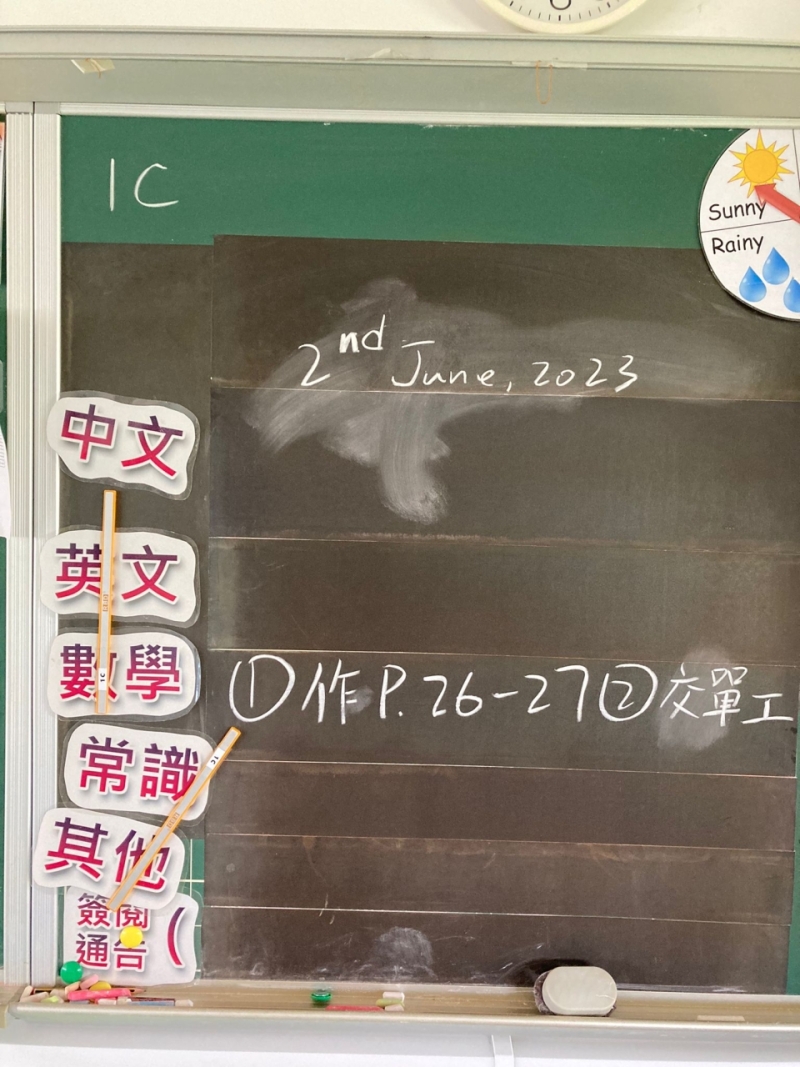 1C
Sunny
Rainy
2nd June, 2023
中文
英文
數學 ①作P.26-27②交單工
常識
其他
簽閱
通告 (